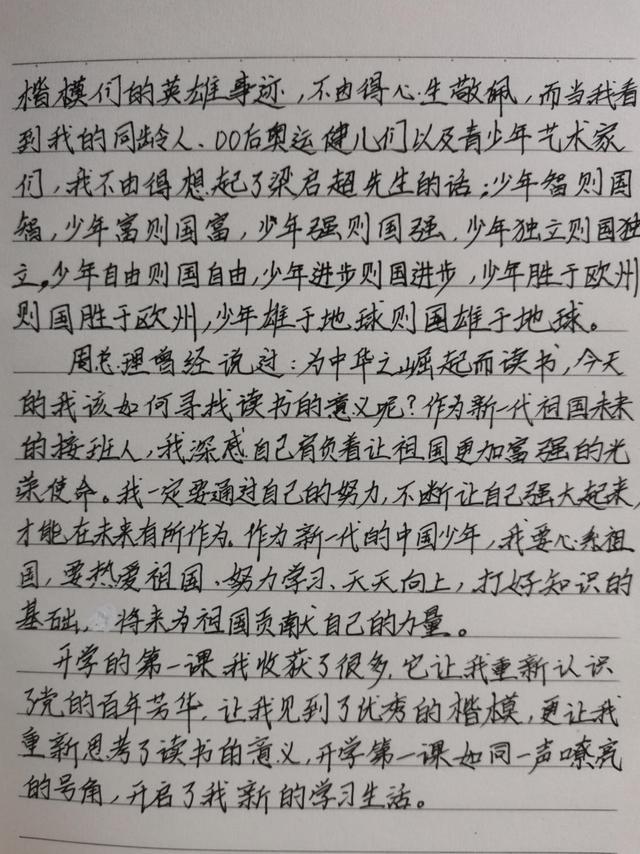 楷模们的英雄事迹，不由得心生敬佩，而当我看
到我的同龄人、00后奥运健儿们以及青少年艺术家
们，我不由得想起了梁启超先生的话：少年智则国
智，少年富则国富，少年强则国强，少年独立则国独
立，少年自由则国自由，少年进步则国进步，少年胜于欧州
则国胜于欧州，少年雄于地球则国雄于地球。
周总理曾经说过：为中华之崛起而读书，今天
的我该如何寻找读书的意义呢？作为新一代祖国未来
的接班人，我深感自己肩负着让祖国更加富强的光
荣使命。我一定要通过自己的努力，不断让自己强大起来，
才能在未来有所作为。作为新一代的中国少年，我要心系祖
国，要热爱祖国、努力学习、天天向上，打好知识的
基础，将来为祖国贡献自己的力量。
开学的第一课我收获了很多，它让我重新认识
了党的百年芳华，让我见到了优秀的楷模，更让我
重新思考了读书的意义，开学第一课如同一声嘹亮
的号角，开启了我新的学习生活。